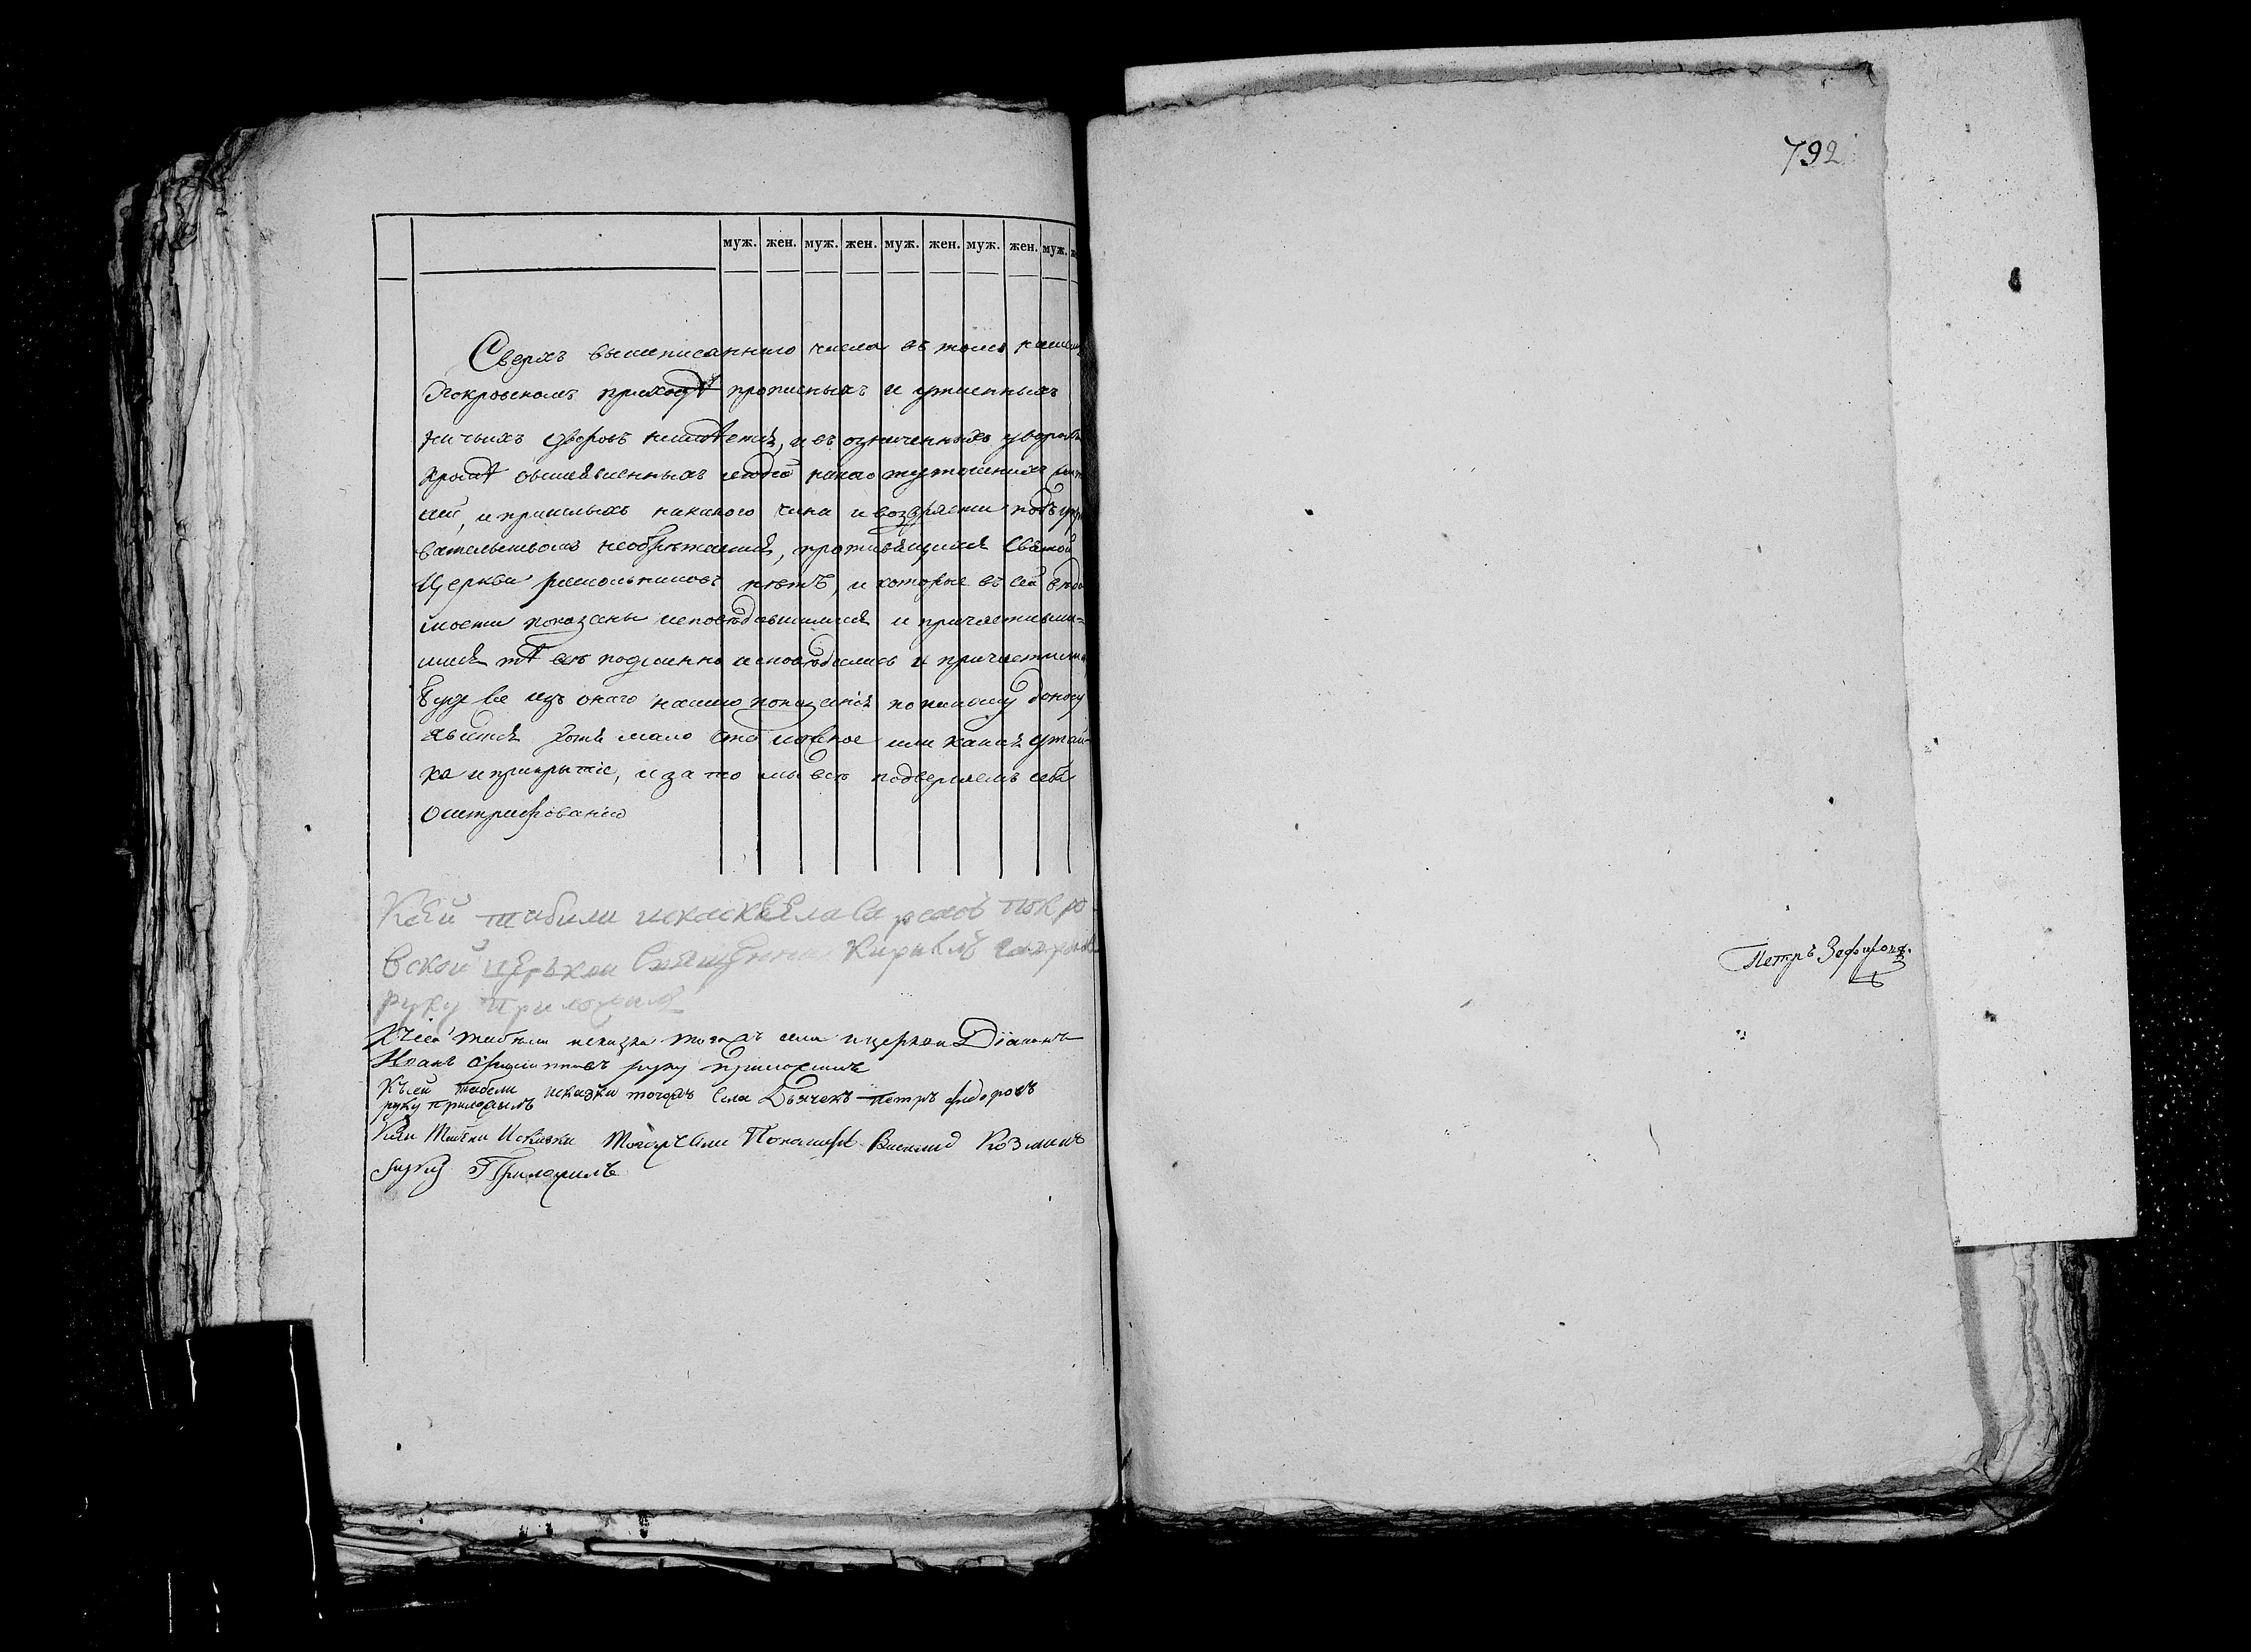 муж. жен. муж. жен. муж. жен. муж. жен. муж.
Сверхъ вышеписаннаго числа въ томъ нашемъ
Покровскомъ приходѣ прописныхъ и утаенныхъ
ничьихъ дворовъ неимѣется, и въ означенныхъ дворахъ
кромѣ объявленныхъ людей какъ тутошнихъ
и пришлыхъ никакого чина и возраста подъ
вательствомъ необрѣтается, противящихся Святой
Церкви раскольниковъ нѣтъ, и которые въ сей вѣдо
мости показаны исповѣдавшимися и причастивши-
мися тѣ всѣ подлинно исповѣдались и причастились
Буде же изъ онаго нашего показанія по чьему доносу
явится хотя мало что ложное или какая утай-
ка и прикрытіе, и за то мы всѣ подвергаемъ себя
оштрафованію
Ксей табели искаске села покро
вской церькви Священникъ Кирилъ
руку приложилъ
Ксей табели исказки тогожъ села и церкви Діаконъ
Иванъ руку приложилъ
Къ сей табели исказки тогожъ села Дьячекъ петръ федоровъ
руку приложилъ
Ксеи Табели Исказки Тогожъ Села Пономарь Василей Козминъ
руку Приложилъ
792
Петръ